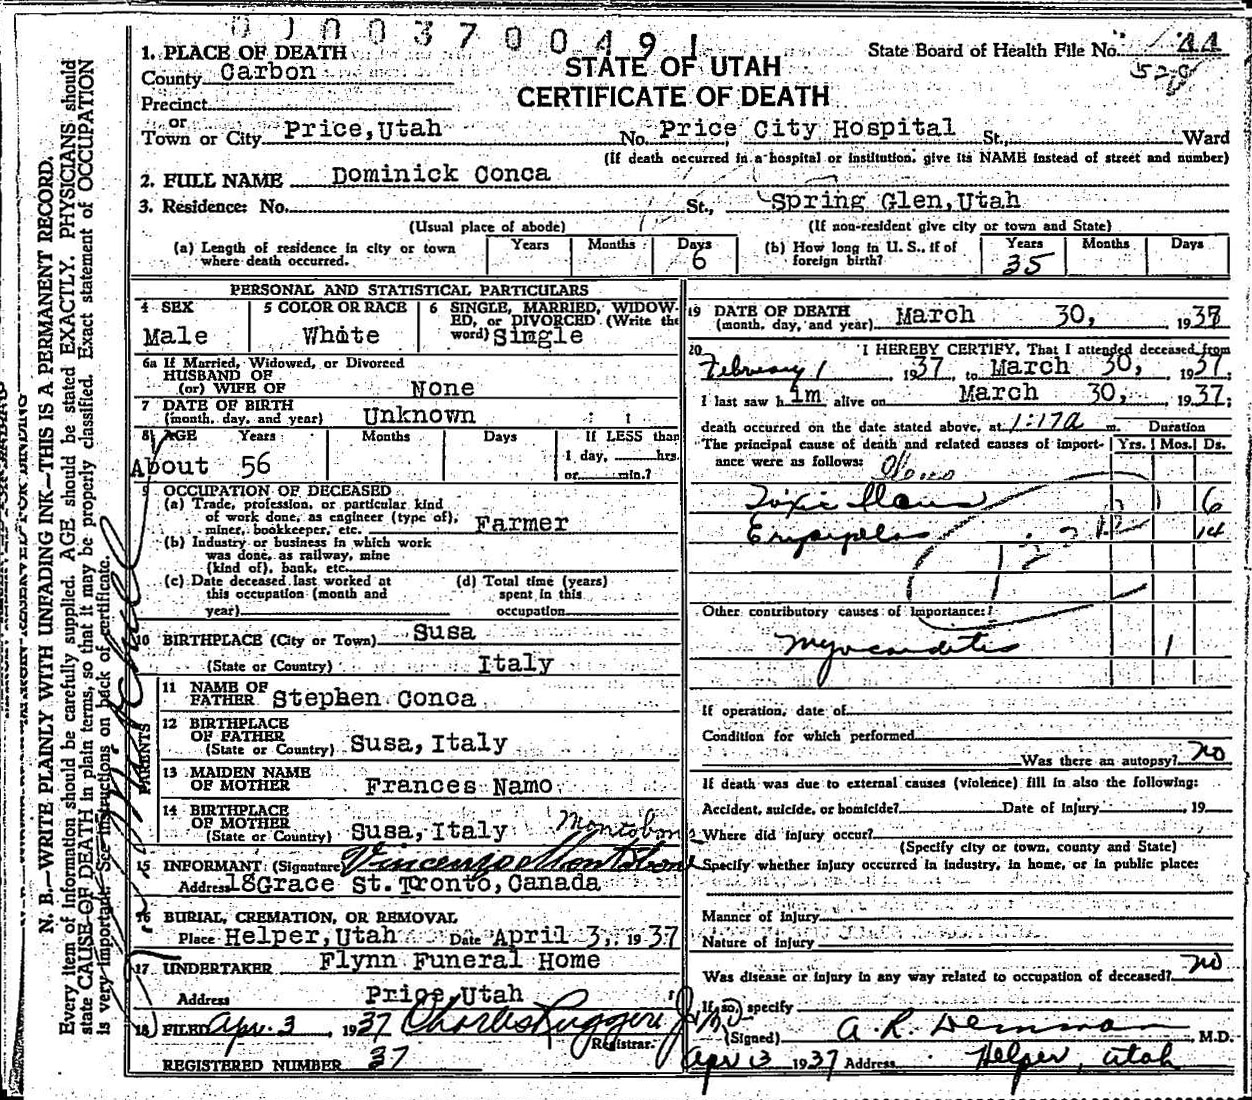 0100370049 1
1. PLACE OF DEATH
County Carbon
Precinct
or
Town or City Price, Utah
State Board of Health File No. 44
STATE OF UTAH
CERTIFICATE OF DEATH
No. Price City Hospital St., Ward
(If death occurred in a hospital or institution, give its NAME instead of street and number)
2. FULL NAME Dominick Conca
3. Residence: No. St., Spring Glen, Utah
(Usual place of abode) (If non-resident give city or town and State)
(a) Length of residence in city or town where death occurred. Years Months Days 6
(b) How long in U. S., if of foreign birth? Years 35 Months Days
PERSONAL AND STATISTICAL PARTICULARS
4 SEX Male
5 COLOR OR RACE White
6 SINGLE, MARRIED, WIDOWED, or DIVORCED (Write the word) Single
6a If Married, Widowed, or Divorced
HUSBAND OF
(or) WIFE OF None
7 DATE OF BIRTH
(month, day, and year) Unknown
8 AGE Years Months Days If LESS than
1 day, hrs.
or min.?
About 56
9 OCCUPATION OF DECEASED
(a) Trade, profession, or particular kind
of work done, as engineer (type of),
miner, bookkeeper, etc. Farmer
(b) Industry or business in which work
was done, as railway, mine
(kind of), bank, etc.
(c) Date deceased last worked at
this occupation (month and
year)
(d) Total time (years)
spent in this
occupation
10 BIRTHPLACE (City or Town) Susa
(State or Country) Italy
PARENTS
11 NAME OF
FATHER Stephen Conca
12 BIRTHPLACE
OF FATHER
(State or Country) Susa, Italy
13 MAIDEN NAME
OF MOTHER Frances Namo
14 BIRTHPLACE
OF MOTHER
(State or Country) Susa, Italy
15 INFORMANT (Signature) Vincenzo Montobone
Montobone
Address 18Grace St. Tronto, Canada
16 BURIAL, CREMATION, OR REMOVAL
Place Helper, Utah Date April 3, 1937
17 UNDERTAKER Flynn Funeral Home
Address Price, Utah
18 FILED Apr. 3 1937 Charles Ruggeri Jr MD
Registrar.
REGISTERED NUMBER 37
19 DATE OF DEATH
(month, day, and year) March 30, 1937
20 I HEREBY CERTIFY, That I attended deceased from
February 1 1937, to March 30, 1937;
I last saw him alive on March 30, 1937;
death occurred on the date stated above, at 1:17a m. Duration
The principal cause of death and related causes of importance were as follows: Yrs. Mos. Ds.
Toxic Ileus 6
Erysipelas 14
Other contributory causes of importance:
Myocarditis 1
If operation, date of
Condition for which performed
Was there an autopsy? no
If death was due to external causes (violence) fill in also the following:
Accident, suicide, or homicide? Date of injury 19
Where did injury occur?
(Specify city or town, county and State)
Specify whether injury occurred in industry, in home, or in public place:
Manner of injury
Nature of injury
Was disease or injury in any way related to occupation of deceased? no
If so, specify
(Signed) A. R. Demman, M.D.
Apr 3 1937 Address Helper, Utah
N. B.—WRITE PLAINLY WITH UNFADING INK—THIS IS A PERMANENT RECORD.
Every item of information should be carefully supplied. AGE should be stated EXACTLY. PHYSICIANS should
state CAUSE OF DEATH in plain terms, so that it may be properly classified. Exact statement of OCCUPATION
is very important. See instructions on back of certificate.